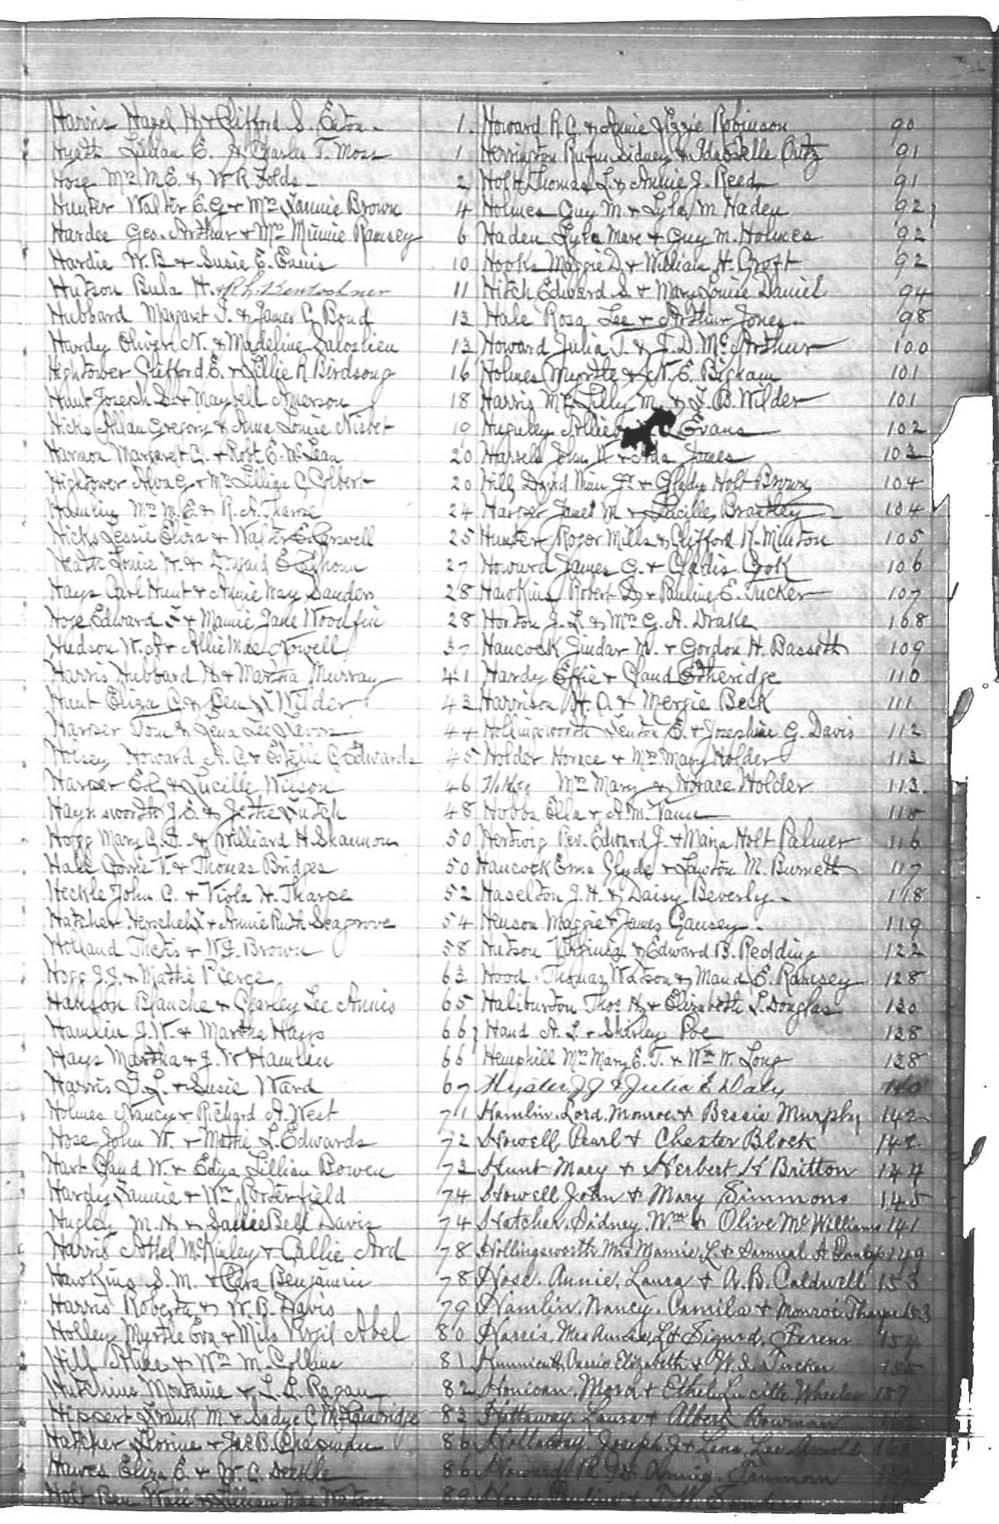 Harris Hazel H & Clifford S. Eaton 1
Hyatt Lillian E. & Charles T. Moss 1
Hose Mrs M.E. & W.R. Folds 2
Hunter Walter E.G. & Mrs Nannie Brown 4
Hardee Geo. Arthur & Mrs Minnie Ramsey 6
Hardie W.B. & Susie E. Ennis 10
Hutson Bula H. & 11
Hubbard Margaret J. & James C. Bond 13
Hardy Oliver N. & Madeline 13
Hightower Clifford E. & Lillie R Birdsong 16
Hunt Joseph D. & Maybell Amerson 18
Hicks Allan Gregory & Anna Louise Nisbet 19
Harmon Margaret C. & Robt E. McLean 20
Hightower Alva G & Mrs Lillian C. Colbert 20
Mrs M.E. & R.A. Tharpe 24
Hicks Jessie Elvira & Walter E. Carswell 25
Heath Louie H. & 27
Hays Carl Hunt & Annie May Sanders 28
Hose Edward F & Mamie Jane Woodfin 28
Hudson W.A & Allie Mae Howell 37
Harris Hubbard H & Martha Murray 41
Hunt Eliza C. & Ben J Wilder 43
Harper Tom & Lena Lee 44
Holsey Howard A.C. & Estelle G. Edwards 45
Harper E.C. & Lucille Wilson 46
Haynsworth J.E. & Jettie Futch 48
Hogg Mary C.J. & Williard H. Shannon 50
Hall Corrie V. & Thomas Bridges 50
Heckle John C. & Viola H. Tharpe 52
Hatcher Herschel & Annie Ruth Seagrove 54
Holland Thetis & W.J. Brown 58
Hogg J.J. & Mattie Pierce 63
Hanson Blanche & Charley Lee Annis 65
Hamlin J.W. & Martha Hays 66
Hays Martha & J.W. Hamlin 66
Harris J.L. & Susie Ward 67
Holmes Nancy & Richard A. West 71
Hose John W. & Mattie L. Edwards 72
Hart Claud W. & Edna Lillian Bowen 73
Hardy Fannie & Wm Porterfield 74
Hugley M.H & Sallie Bell Davis 74
Harris Athel McKinley & Callie Ard 78
Hawkins S.M. & Clara Benjamin 78
Harris Roberta & W.B. Davis 79
Holley Myrtle Eva & Milo Virgil Abel 80
Hill Alice & Wm M. Collins 81
Hutchins Montaine & L.L. Ragan 82
Hippert Frank M. & Sadye C. 83
Hatcher Corine & Jas B. Chapman 86
Hawes Eliza E. & W.C. 86
Holt Ben Wall & Lillian Mae Watson 89
Howard R.G. & Annie Lizzie Robinson 90
Herrington Rufus Sidney & Idabelle 91
Holt Thomas L. & Annie J. Reed 91
Holmes Guy M & Lyla M Haden 92
Haden Lyla Mere & Guy M. Holmes 92
Hooks Maggie D & William H. Croft 92
Hitch Edward S. & Mary Louise Daniel 94
Hale Rosa Lee & Arthur Jones 98
Howard Julia T. & J.D. McArthur 100
Holmes Myrtle & N.E. Bigham 101
Harris Mrs Lilly M. & J.B. Wilder 101
Huguley Allie Evans 102
Harrell John W & Ada James 103
Hill David Jr & Gladys Holt Brown 104
Harper Janet M & Lucille Brantley 104
Hunter Roger Mills & Clifford K. Minton 105
Howard James G. & Gladis Cook 106
Hawkins Robert D. & Pauline E. Tucker 107
Horton J.L & Mrs G.A. Drake 108
Hancock Lindar M. & Gordon H. Bassett 109
Hardy Effie & Claud Etheridge 110
Harrison H.A. & Mergie Beck 111
Hollingsworth Newton E. & Josephine G. Davis 112
Holder Horace & Mrs Mary Holder 113
Mrs Mary & Horace Holder 113
Hobbs Ella & A.M. Vann 115
Hertwig Rev. Edward J. & Maria Holt Palmer 116
Hancock Erma Clyde & Lawton M. Burnett 117
Haselton J.H. & Daisy Beverly 118
Henson Maggie & James Causey 119
Hutson Virginia & Edward B. Redding 122
Hood Thomas Watson & Maud E. Ramsey 128
Haliburton Thos H. & Elizabeth L. Douglas 130
Hand A.L. & Shirley Poe 138
Hemphill Mrs Mary E.T. & Wm W. Long 138
Hyster J J & Julia E Daly 140
Hamlin Lord Monroe & Bessie Murphy 142
Howell, Pearl & Chester Block 142
Hunt Mary & Herbert K Britton 144
Howell John & Mary Simmons 145
Hatcher, Sidney, Wm & Olive McWilliams 141
Hollingsworth Mrs Mamie L. & Samual A 149
Hose, Annie, Laura & A.B. Caldwell 153
Hamlin, Nancy, Camila & Monroe Tharpe 153
Harris, Mrs Annie L & Sigurd, Ferenn 154
Elizabeth & Tucker 155
Mora & Ethel Lucille Wheeler 157
Hattaway, Laura & Albert Bowman
Hollaway, Joseph J & Lena Lee Arnold
Howard & Annie